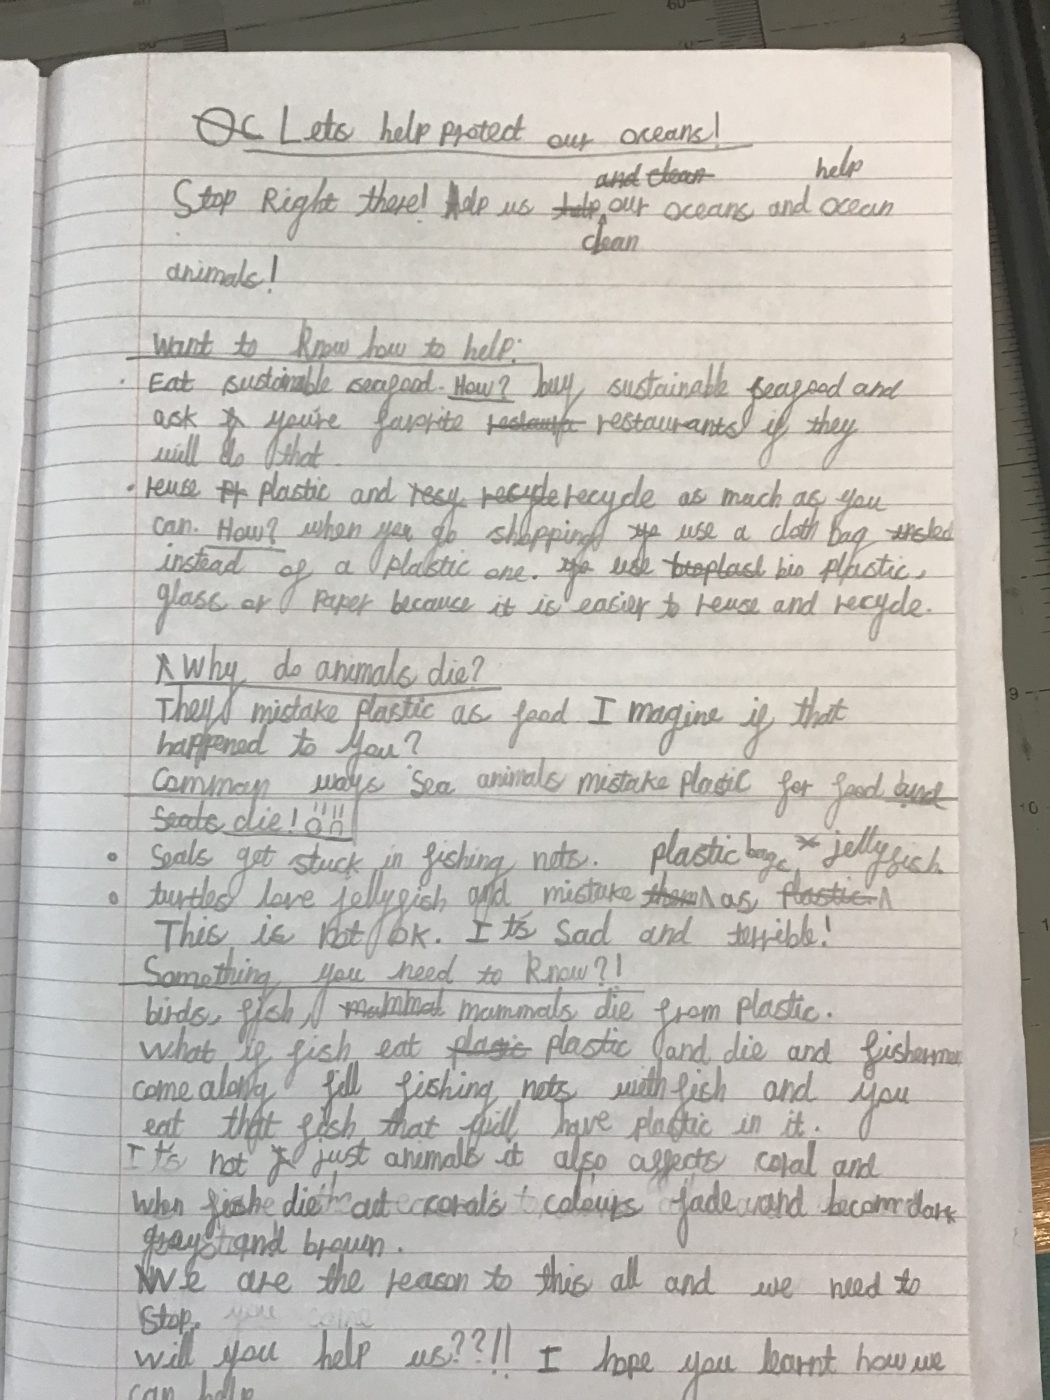 Lets help protect our oceans!
and clean help
Stop Right there! Help us help our oceans and ocean
clean
animals!
Want to know how to help:
· Eat sustainable seagood. How? buy sustainable seagood and
ask you're favorite restaurants if they
will do that
· reuse plastic and recycle recycle as much as you
can. How? when you go shopping use a cloth bag
instead of a plastic one. use bioplast bio plastic,
glass or Paper because it is easier to reuse and recycle.
Why do animals die?
They mistake plastic as food Imagine if that
happened to you?
Common ways Sea animals mistake plastic for food and
Seals die!
• Seals get stuck in fishing nets. plastic bags jellyfish.
• turtles love jellyfish and mistake them as plastic
This is not ok. It's Sad and terrible!
Something you need to know?!
birds, fish, mammal mammals die from plastic.
What if fish eat plastic and die and fishermen
come along fill fishing nets with fish and you
eat that fish that will have plastic in it.
It's not just animals it also affects coral and
when die out corals colours fade and become dark
and brown.
We are the reason to this all and we need to
stop.
will you help us??!! I hope you learnt how we
can help